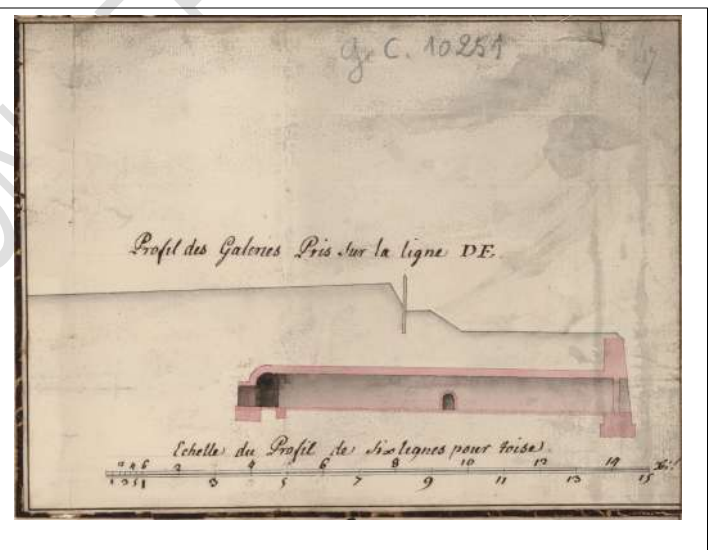 Ge C. 10251
Profil des Galeries Pris sur la ligne DE.
Echelle du Profil de Six lignes pour toise.
2 4 6 2 4 6 8 10 12 14
1 3 5 1 3 5 7 9 11 13 15